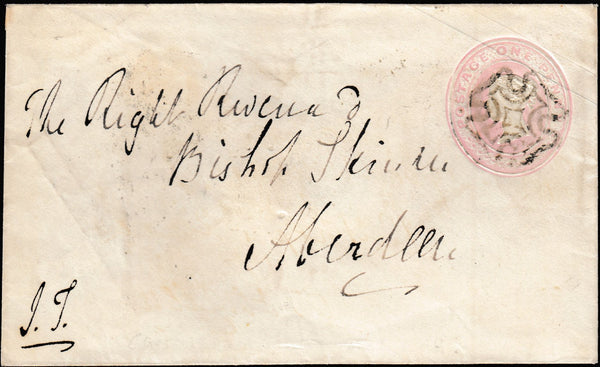 POSTAGE ONE
The Right Revend
Bishop Skinner
Aberdeen
J. T.